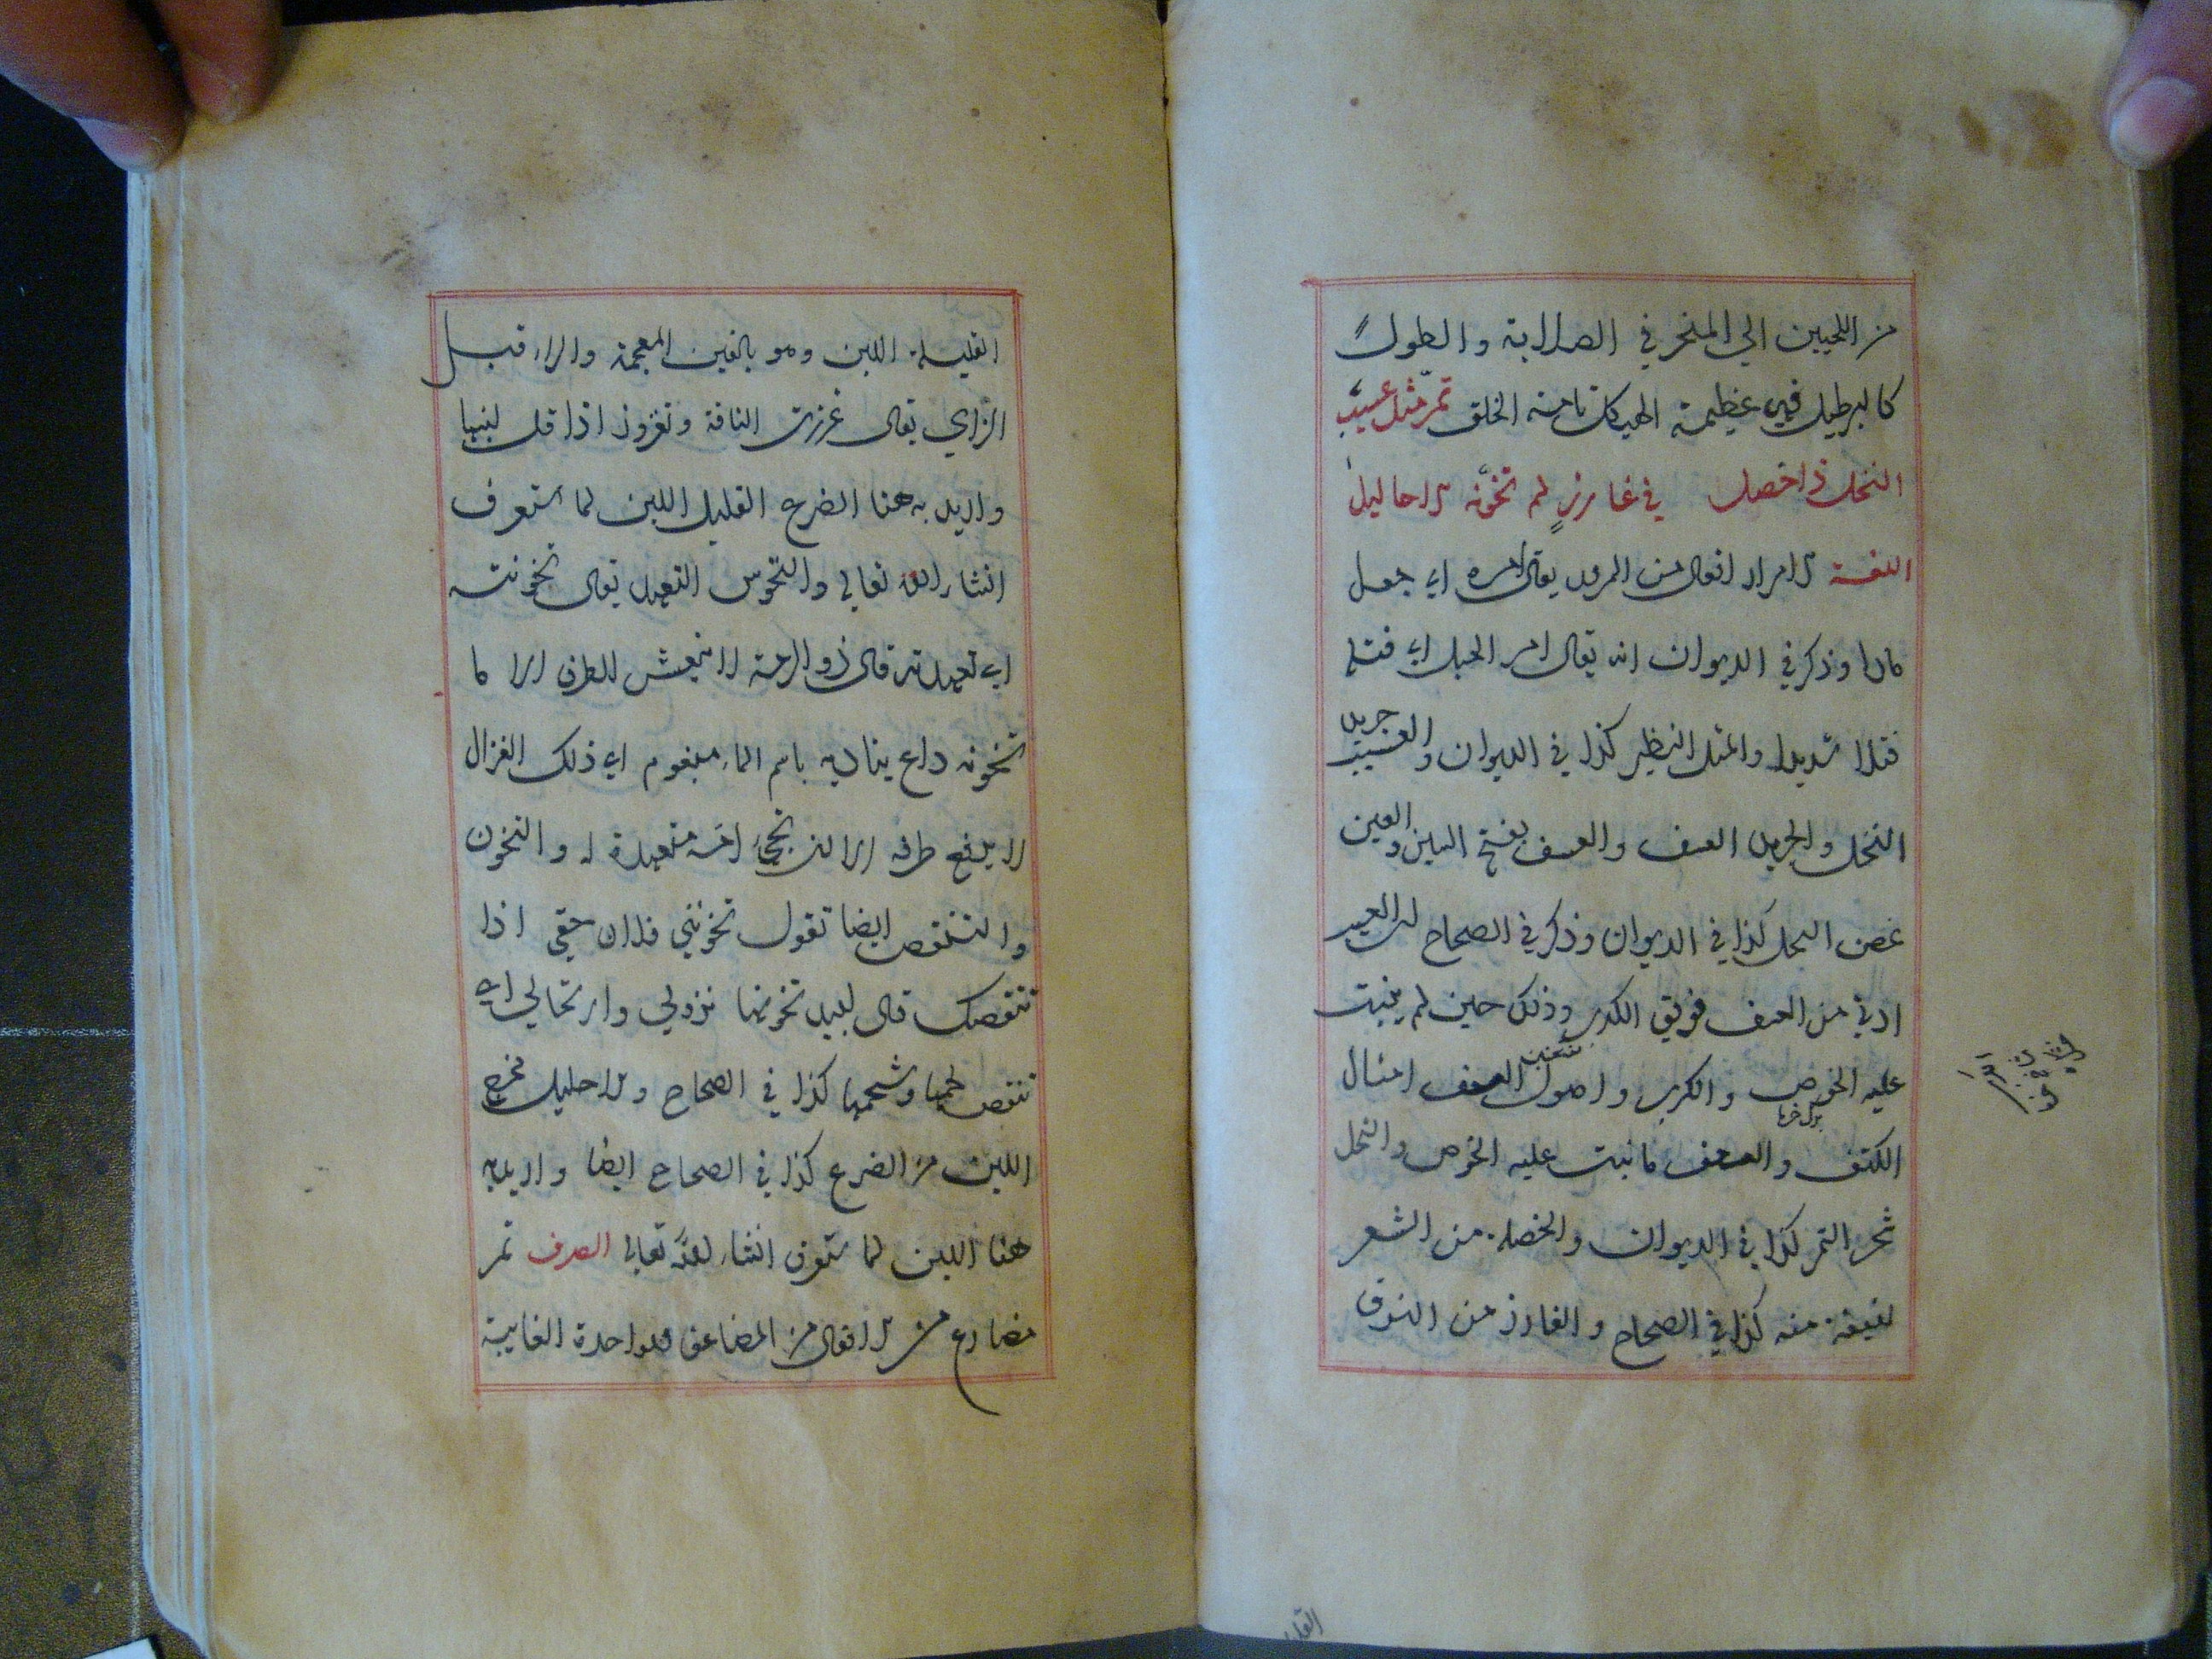 من اللحيين الي المنخر في الصلابة والطول
كالبرطيل فهي عظيمة الهيكل تامة الخلق تمر مثل عسيب
النخل ذا خصل في غارز لم تخونه الاحاليل
اللغة الامرار افعال من المرور يقال امره اي جعل
مارا وذكر في الديوان انه يقال امر الحبل اي فتله
فتلا شديدا والمثل النظير كذا في الديوان والعسيب جريد
النخل والجريد السعف والسعف بفتح السين والعين
غصن النخل كذا في الديوان وذكر في الصحاح ان العسيب
من السعف فويق الكرب وذلك حين لم ينبت
عليه الخوص والكرب اصول السعف امثال
الكتف والسعف ما نبت عليه الخوص والنخل
شجر التمر كذا في الديوان والخصلة من الشعر
لفيفة منه كذا في الصحاح والغارز من النوق
القليلة اللبن وهو بالغين المعجمة والراء قبل
الزاي يقال غرزت الناقة وتغرز اذا قل لبنها
واريد به هنا الضرع القليل اللبن لما ستعرف
انشاء الله تعالي والتخون التعهد يقال تخونته
اي تعهدته قال ذو الرمة لا ينعش الطرف الا ما
تخونه داع يناديه باسم الماء مبغوم اي ذلك الغزال
لا يرفع طرفه الا ان تجيء امه متعهدة له والتخون
والتنقص ايضا تقول تخونني فلان حقي اذا
تنقصك قال لبيد تخونها نزولي وارتحالي اي
تنقص لحمها وشحمها كذا في الصحاح والاحليل مخرج
اللبن من الضرع كذا في الصحاح ايضا واريد به
هنا اللبن لما ستعرف انشاء الله تعالي الصرف تمر
مضارع من الافعال من المضاعف للواحدة الغايبة